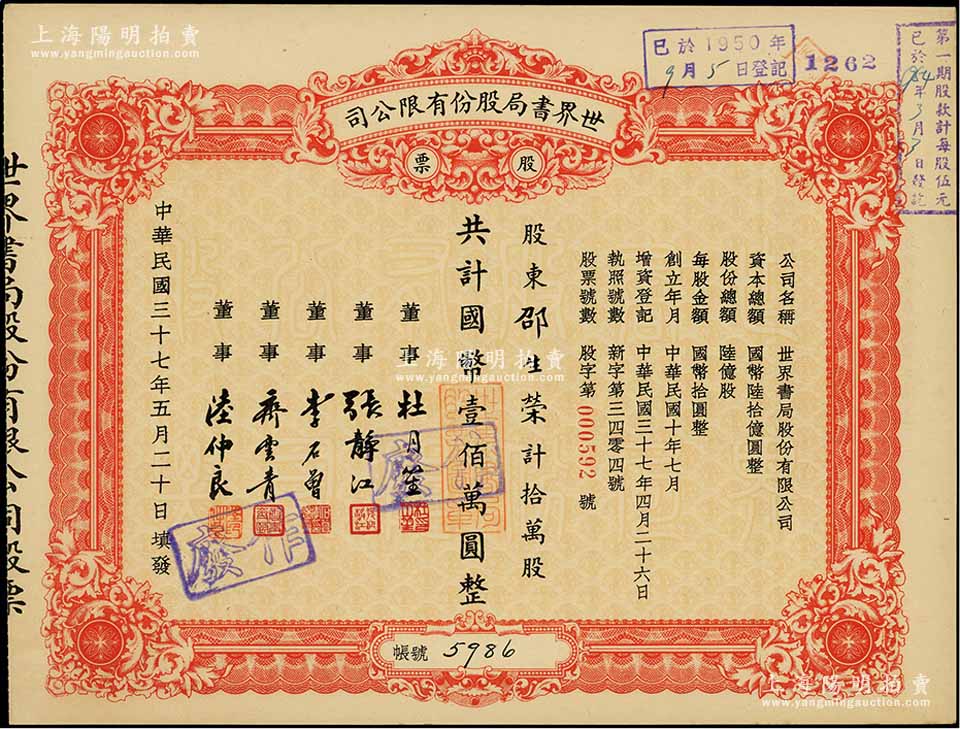 上海陽明拍賣
www.yangmingauction.com
已於1950年
9月5日登記
1262
第一期股款計每股伍元
年3月 日登記
世界書局股份有限公司
股票
公司名稱 世界書局股份有限公司
資本總額 國幣陸拾億圓整
股份總額 陸億股
每股金額 國幣拾圓整
創立年月 中華民國十年七月
增資登記 中華民國三十七年四月二十六日
執照號數 新字第三四零四號
股票號數 股字第000592號
股東邵生榮計拾萬股
共計國幣壹佰萬圓整
董事 杜月笙
董事 張靜江
董事 李石曾
董事 齊雲青
董事 陸仲良
中華民國三十七年五月二十日填發
作廢
作廢
帳號 5986
世界書局股份有限公司股票
上海陽明拍賣
www.yangmingauction.com
上海陽明拍賣
www.yangmingauction.com